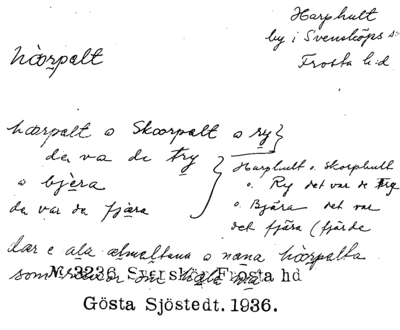 Harphult
by i Svensköps s:
Frosta h:d
hàrpalt
hærpalt o Skærpalt o ry
da va de try
o bjèra
da var da fjæra
Harphult o. Skorphult
o. Ry det var de try
o. Bjära det var
det fjära (fjärde
dar e ala almaltana o nana hærpalta
som
№ 3236 Svensköp, Frosta hd
Gösta Sjöstedt. 1936.